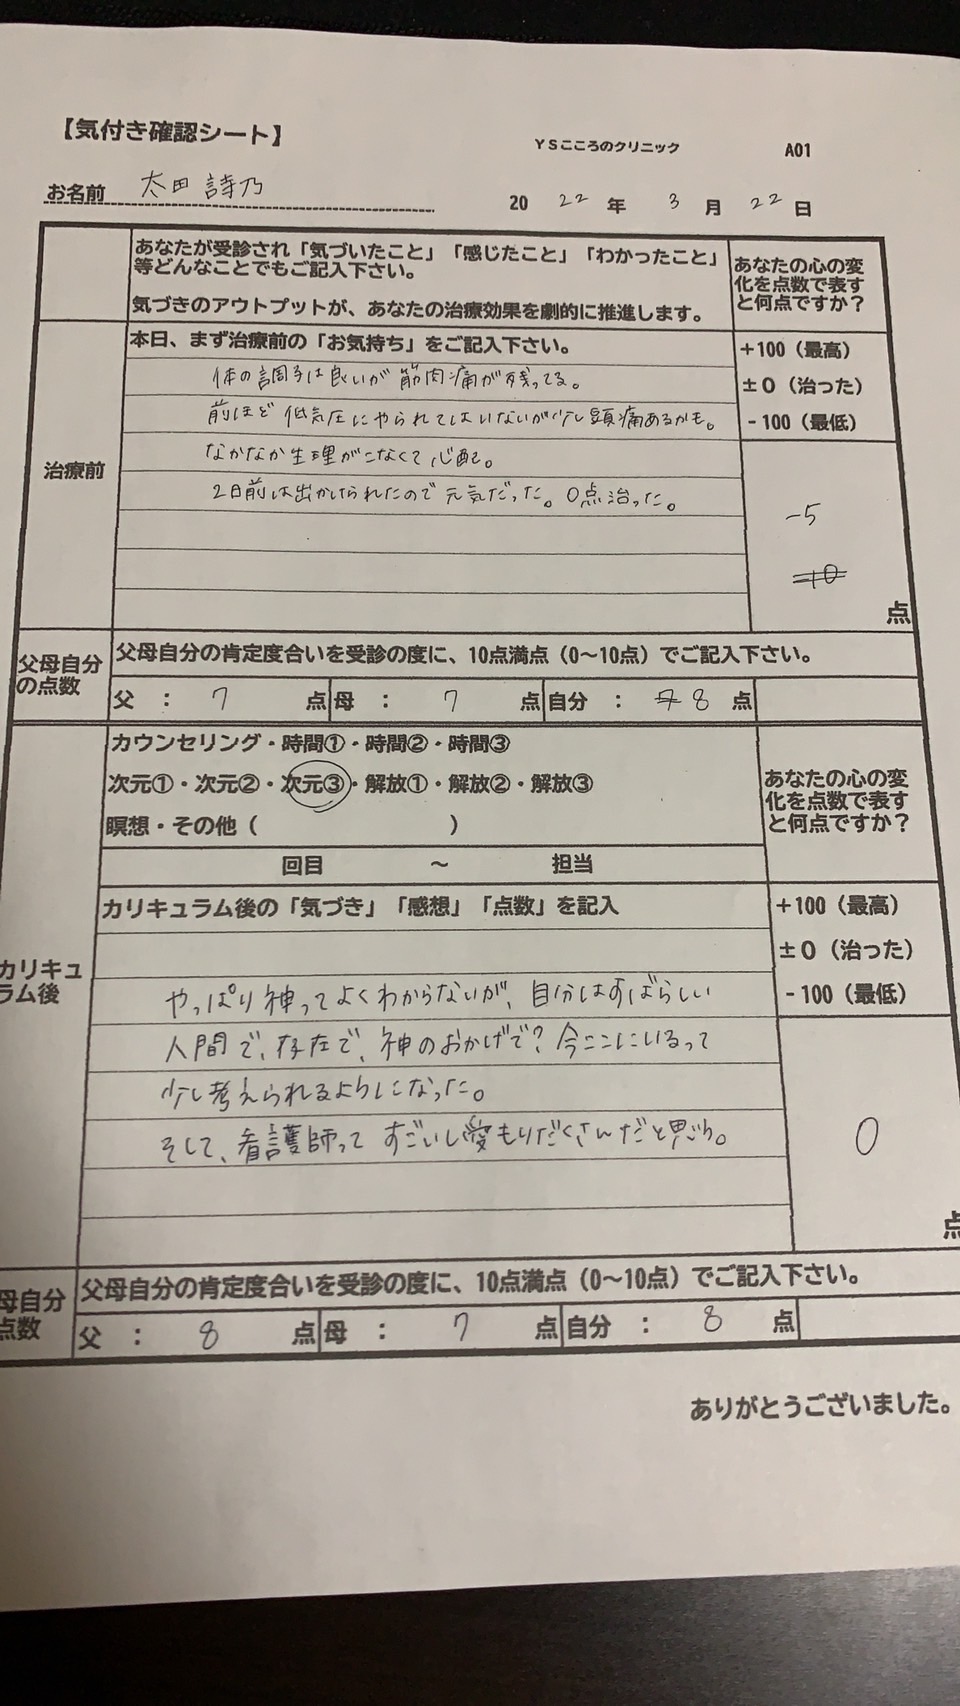 【気付き確認シート】
YSこころのクリニック
A01
お名前 太田 詩乃
2022年 3月 22日
あなたが受診され「気づいたこと」「感じたこと」「わかったこと」
等どんなことでもご記入下さい。
気づきのアウトプットが、あなたの治療効果を劇的に推進します。
あなたの心の変
化を点数で表す
と何点ですか？
治療前
本日、まず治療前の「お気持ち」をご記入下さい。
体の調子は良いが筋肉痛が残ってる。
前ほど低気圧にやられてはいないが少し頭痛あるかも。
なかなか生理がこなくて心配。
2日前は出かけられたので元気だった。0点治った。
+100（最高）
±0（治った）
-100（最低）
-5
点
父母自分
の点数
父母自分の肯定度合いを受診の度に、10点満点（0～10点）でご記入下さい。
父 ： 7 点 母 ： 7 点 自分 ： 8 点
カリキュ
ラム後
カウンセリング・時間①・時間②・時間③
次元①・次元②・次元③・解放①・解放②・解放③
瞑想・その他（ ）
回目 ～ 担当
あなたの心の変
化を点数で表す
と何点ですか？
カリキュラム後の「気づき」「感想」「点数」を記入
やっぱり神ってよくわからないが、自分はすばらしい
人間で、存在で、神のおかげで？今ここにいるって
少し考えられるようになった。
そして、看護師ってすごいし愛もりだくさんだと思う。
+100（最高）
±0（治った）
-100（最低）
0
点
母自分
点数
父母自分の肯定度合いを受診の度に、10点満点（0～10点）でご記入下さい。
父 ： 8 点 母 ： 7 点 自分 ： 8 点
ありがとうございました。